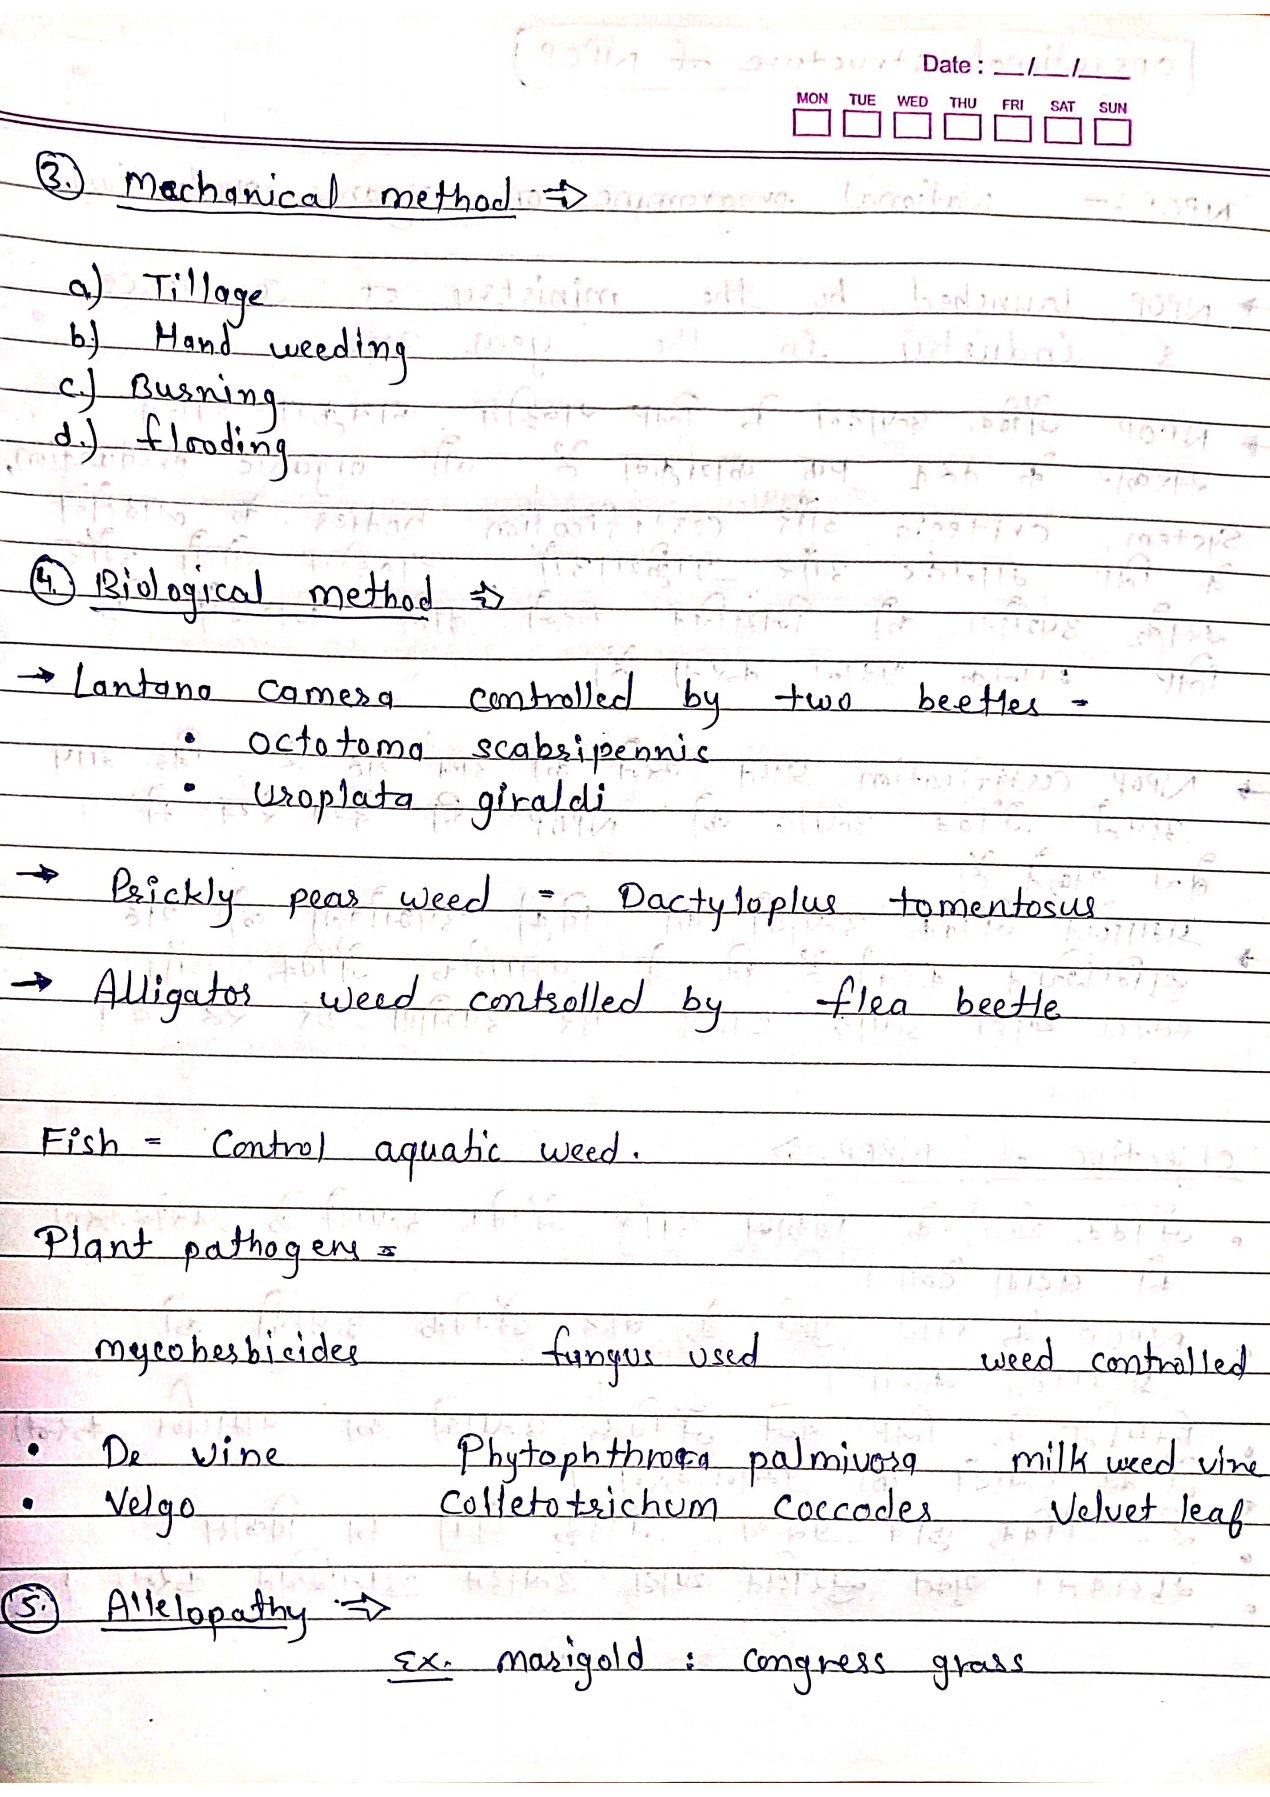 Date : __/__/__
MON TUE WED THU FRI SAT SUN
3. Mechanical method ⇒
a.) Tillage
b.) Hand weeding
c.) Burning
d.) flooding
4. Biological method ⇒
→ Lantana camera controlled by two beetles -
• octotoma scabripennis
• uroplata giraldi
→ Prickly pear weed = Dactyloplus tomentosus
→ Alligator weed controlled by flea beetle
Fish = Control aquatic weed.
Plant pathogens =
mycoherbicides fungus used weed controlled
• De vine Phytophthrora palmivora milk weed vine
• Velgo Colletotrichum coccodes Velvet leaf
5. Allelopathy ⇒
Ex. marigold : congress grass